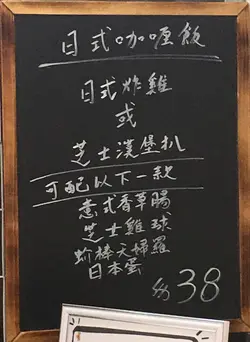 日式咖喱飯
日式炸雞
或
芝士漢堡扒
可配以下一款
意式香草腸
芝士雞球
蚧棒天婦羅
日本蛋
$38